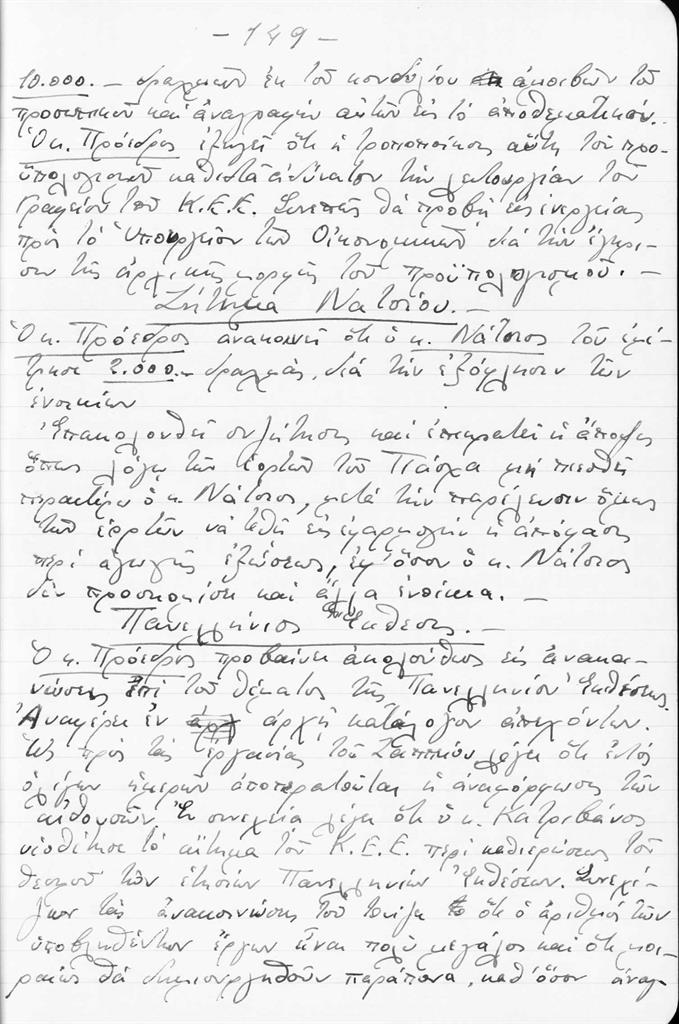 - 149 -
10.000.- δραχμῶν ἐκ τοῦ κονδυλίου ἀμοιβῶν τοῦ
προσωπικοῦ καὶ ἀναγραφὴν αὐτῶν εἰς τὸ ἀποθεματικόν.
Ὁ κ. Πρόεδρος ἐξηγεῖ ὅτι ἡ τροποποίησις αὕτη τοῦ προ-
ϋπολογισμοῦ καθιστᾶ ἀδύνατον τὴν λειτουργίαν τοῦ
Γραφείου τοῦ Κ.Ε.Ε. Συνεπῶς θὰ προβῇ εἰς ἐνεργείας
πρὸς τὸ Ὑπουργεῖον τῶν Οἰκονομικῶν διὰ τὴν ἔγκρι-
σιν τῆς ἀρχικῆς μορφῆς τοῦ προϋπολογισμοῦ. -
Ζήτημα Νατσίου. -
Ὁ κ. Πρόεδρος ἀνακοινοῖ ὅτι ὁ κ. Νάτσιος τοῦ ἐμέ-
τρησε 2.000.- δραχμάς, διὰ τὴν ἐξόφλησιν τῶν
ἐνοικίων
Ἐπακολουθεῖ συζήτησις καὶ ἐπικρατεῖ ἡ ἄποψις
ὅπως λόγῳ τῶν ἑορτῶν τοῦ Πάσχα μὴ πιεσθῇ
περαιτέρω ὁ κ. Νάτσιος, μετὰ τὴν παρέλευσιν ὅμως
τῶν ἑορτῶν νὰ τεθῇ εἰς ἐφαρμογὴν ἡ ἀπόφασις
περὶ ἀγωγῆς ἐξώσεως, ἐφ' ὅσον ὁ κ. Νάτσιος
δὲν προσκομίσῃ καὶ ἄλλα ἐνοίκια. -
Πανελλήνιος Ἔκθεσις. -
Ὁ κ. Πρόεδρος προβαίνει ἀκολούθως εἰς ἀνακοι-
νώσεις ἐπὶ τοῦ θέματος τῆς Πανελληνίου Ἐκθέσεως.
Ἀναφέρει ἐν ἀρχῇ κατάλογον ἀπεχόντων.
Ὡς πρὸς τὰς ἐργασίας τοῦ Ζαππείου λέγει ὅτι ἐντὸς
ὀλίγων ἡμερῶν ἀποπερατοῦται ἡ ἀναμόρφωσις τῶν
αἰθουσῶν. Ἐν συνεχείᾳ λέγει ὅτι ὁ κ. Κατριβάνος
υἱοθέτησε τὸ αἴτημα τοῦ Κ.Ε.Ε. περὶ καθιερώσεως τοῦ
θεσμοῦ τῶν ἐτησίων Πανελληνίων Ἐκθέσεων. Συνεχί-
ζων τὰς ἀνακοινώσεις του τονίζει ὅτι ὁ ἀριθμὸς τῶν
ὑποβληθέντων ἔργων εἶναι πολὺ μεγάλος καὶ ὅτι μοι-
ραίως θὰ δημιουργηθοῦν παράπονα, καθ' ὅσον ἀναγ-